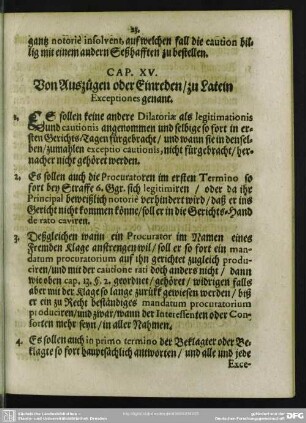 23.
gantz notorié insolvent, auf welchen fall die caution bil-
lig mit einem andern Seßhafften zu bestellen.
CAP. XV.
Von Auszügen oder Einreden / zu Latein
Exceptiones genant.
1. ES sollen keine andere Dilatoriæ als legitimationis
und cautionis angenommen und selbige so fort in er-
sten Gerichts-Tagen fürgebracht / und wann sie in densel-
ben / zumahlen exceptio cautionis, nicht fürgebracht / her-
nacher nicht gehöret werden.
2. Es sollen auch die Procuratoren im ersten Termino so
fort bey Straffe 6. Ggr. sich legitimiren / oder da ihr
Principal beweißlich notoriè verhindert wird / daß er ins
Gericht nicht kommen könne / soll er in die Gerichts-Hand
de rato caviren.
3. Deßgleichen wann ein Procurator im Namen eines
Fremden Klage anstrengen wil / soll er so fort ein man-
datum procuratorium auf ihn gerichtet zugleich produ-
ciren / und mit der cautione rati doch anders nicht / dann
wie oben cap. 12. §. 2. geordnet / gehöret / widrigen falls
aber mit der Klage so lange zurück gewiesen werden / biß
er ein zu Recht beständiges mandatum procuratorium
produciren / und zwar / wann der Interessenten oder Con-
sorten mehr seyn / in aller Nahmen.
4. Es sollen auch in primo termino der Beklagter oder Be-
klagte so fort hauptsächlich antworten / und alle und jede
Exce-